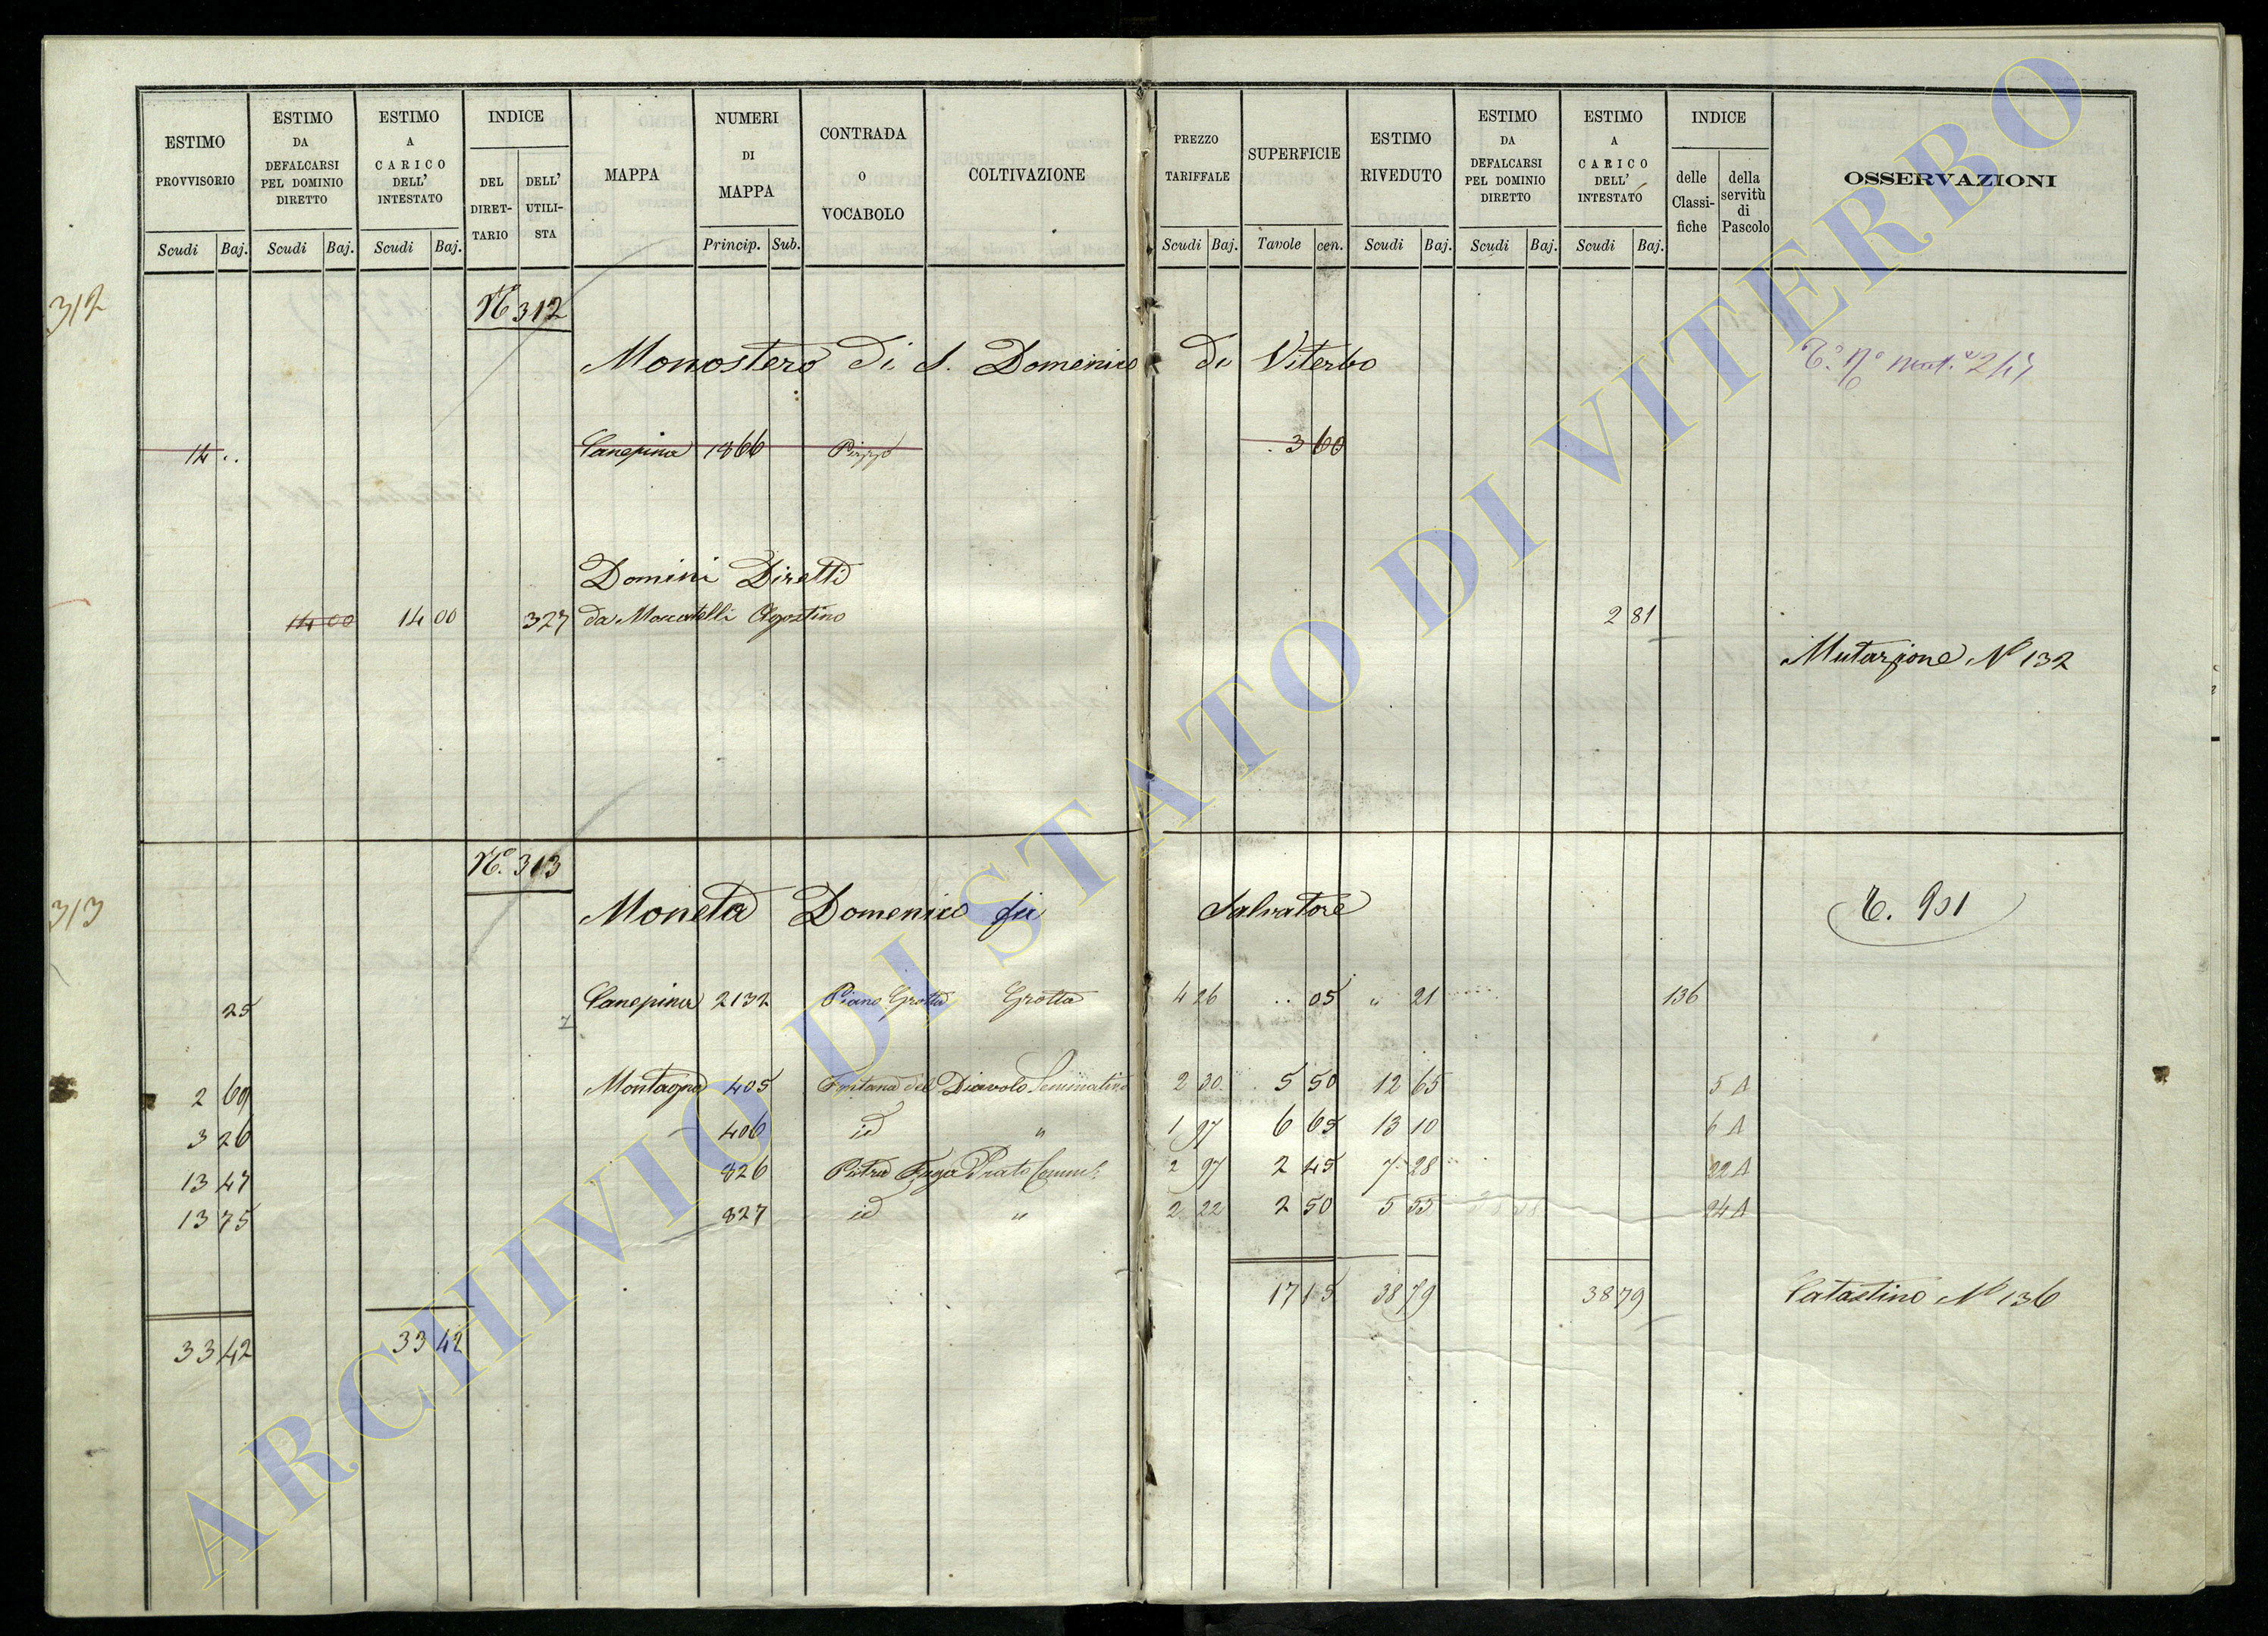 ESTIMO PROVVISORIO
Scudi Baj.
ESTIMO DA DEFALCARSI PEL DOMINIO DIRETTO
Scudi Baj.
ESTIMO A CARICO DELL' INTESTATO
Scudi Baj.
INDICE
DEL DIRET-TARIO
DELL' UTILI-STA
MAPPA
NUMERI DI MAPPA
Princip. Sub.
CONTRADA O VOCABOLO
COLTIVAZIONE
PREZZO TARIFFALE
Scudi Baj.
SUPERFICIE
Tavole cen.
ESTIMO RIVEDUTO
Scudi Baj.
ESTIMO DA DEFALCARSI PEL DOMINIO DIRETTO
Scudi Baj.
ESTIMO A CARICO DELL' INTESTATO
Scudi Baj.
INDICE
delle Classi-fiche
della servitù di Pascolo
OSSERVAZIONI
312
Nº 312
Monastero di S. Domenico di Viterbo
14 .. Canepina 1866 3 60
Domini Diretti
14 00 14 00 327 da Moscatelli Agostino 2 81
Mutazione Nº 132
313
Nº 313
Moneta Domenico fu Salvatore
T. 901
25 Canepina 2132 Piano Grotta Grotta 4 26 .. 05 " 21 136
2 69 Montagna 405 Fontana del Diavolo Seminativo 2 30 5 50 12 65 5 A
3 26 406 id " 1 97 6 65 13 10 6 A
13 47 826 Pietra Fuga Prato 2 97 2 45 7 28 22 A
13 75 827 id " 2 22 2 50 5 55 24 A
17 15 38 79 38 79 Catastino Nº 136
33 42 33 42
ARCHIVIO DI STATO DI VITERBO